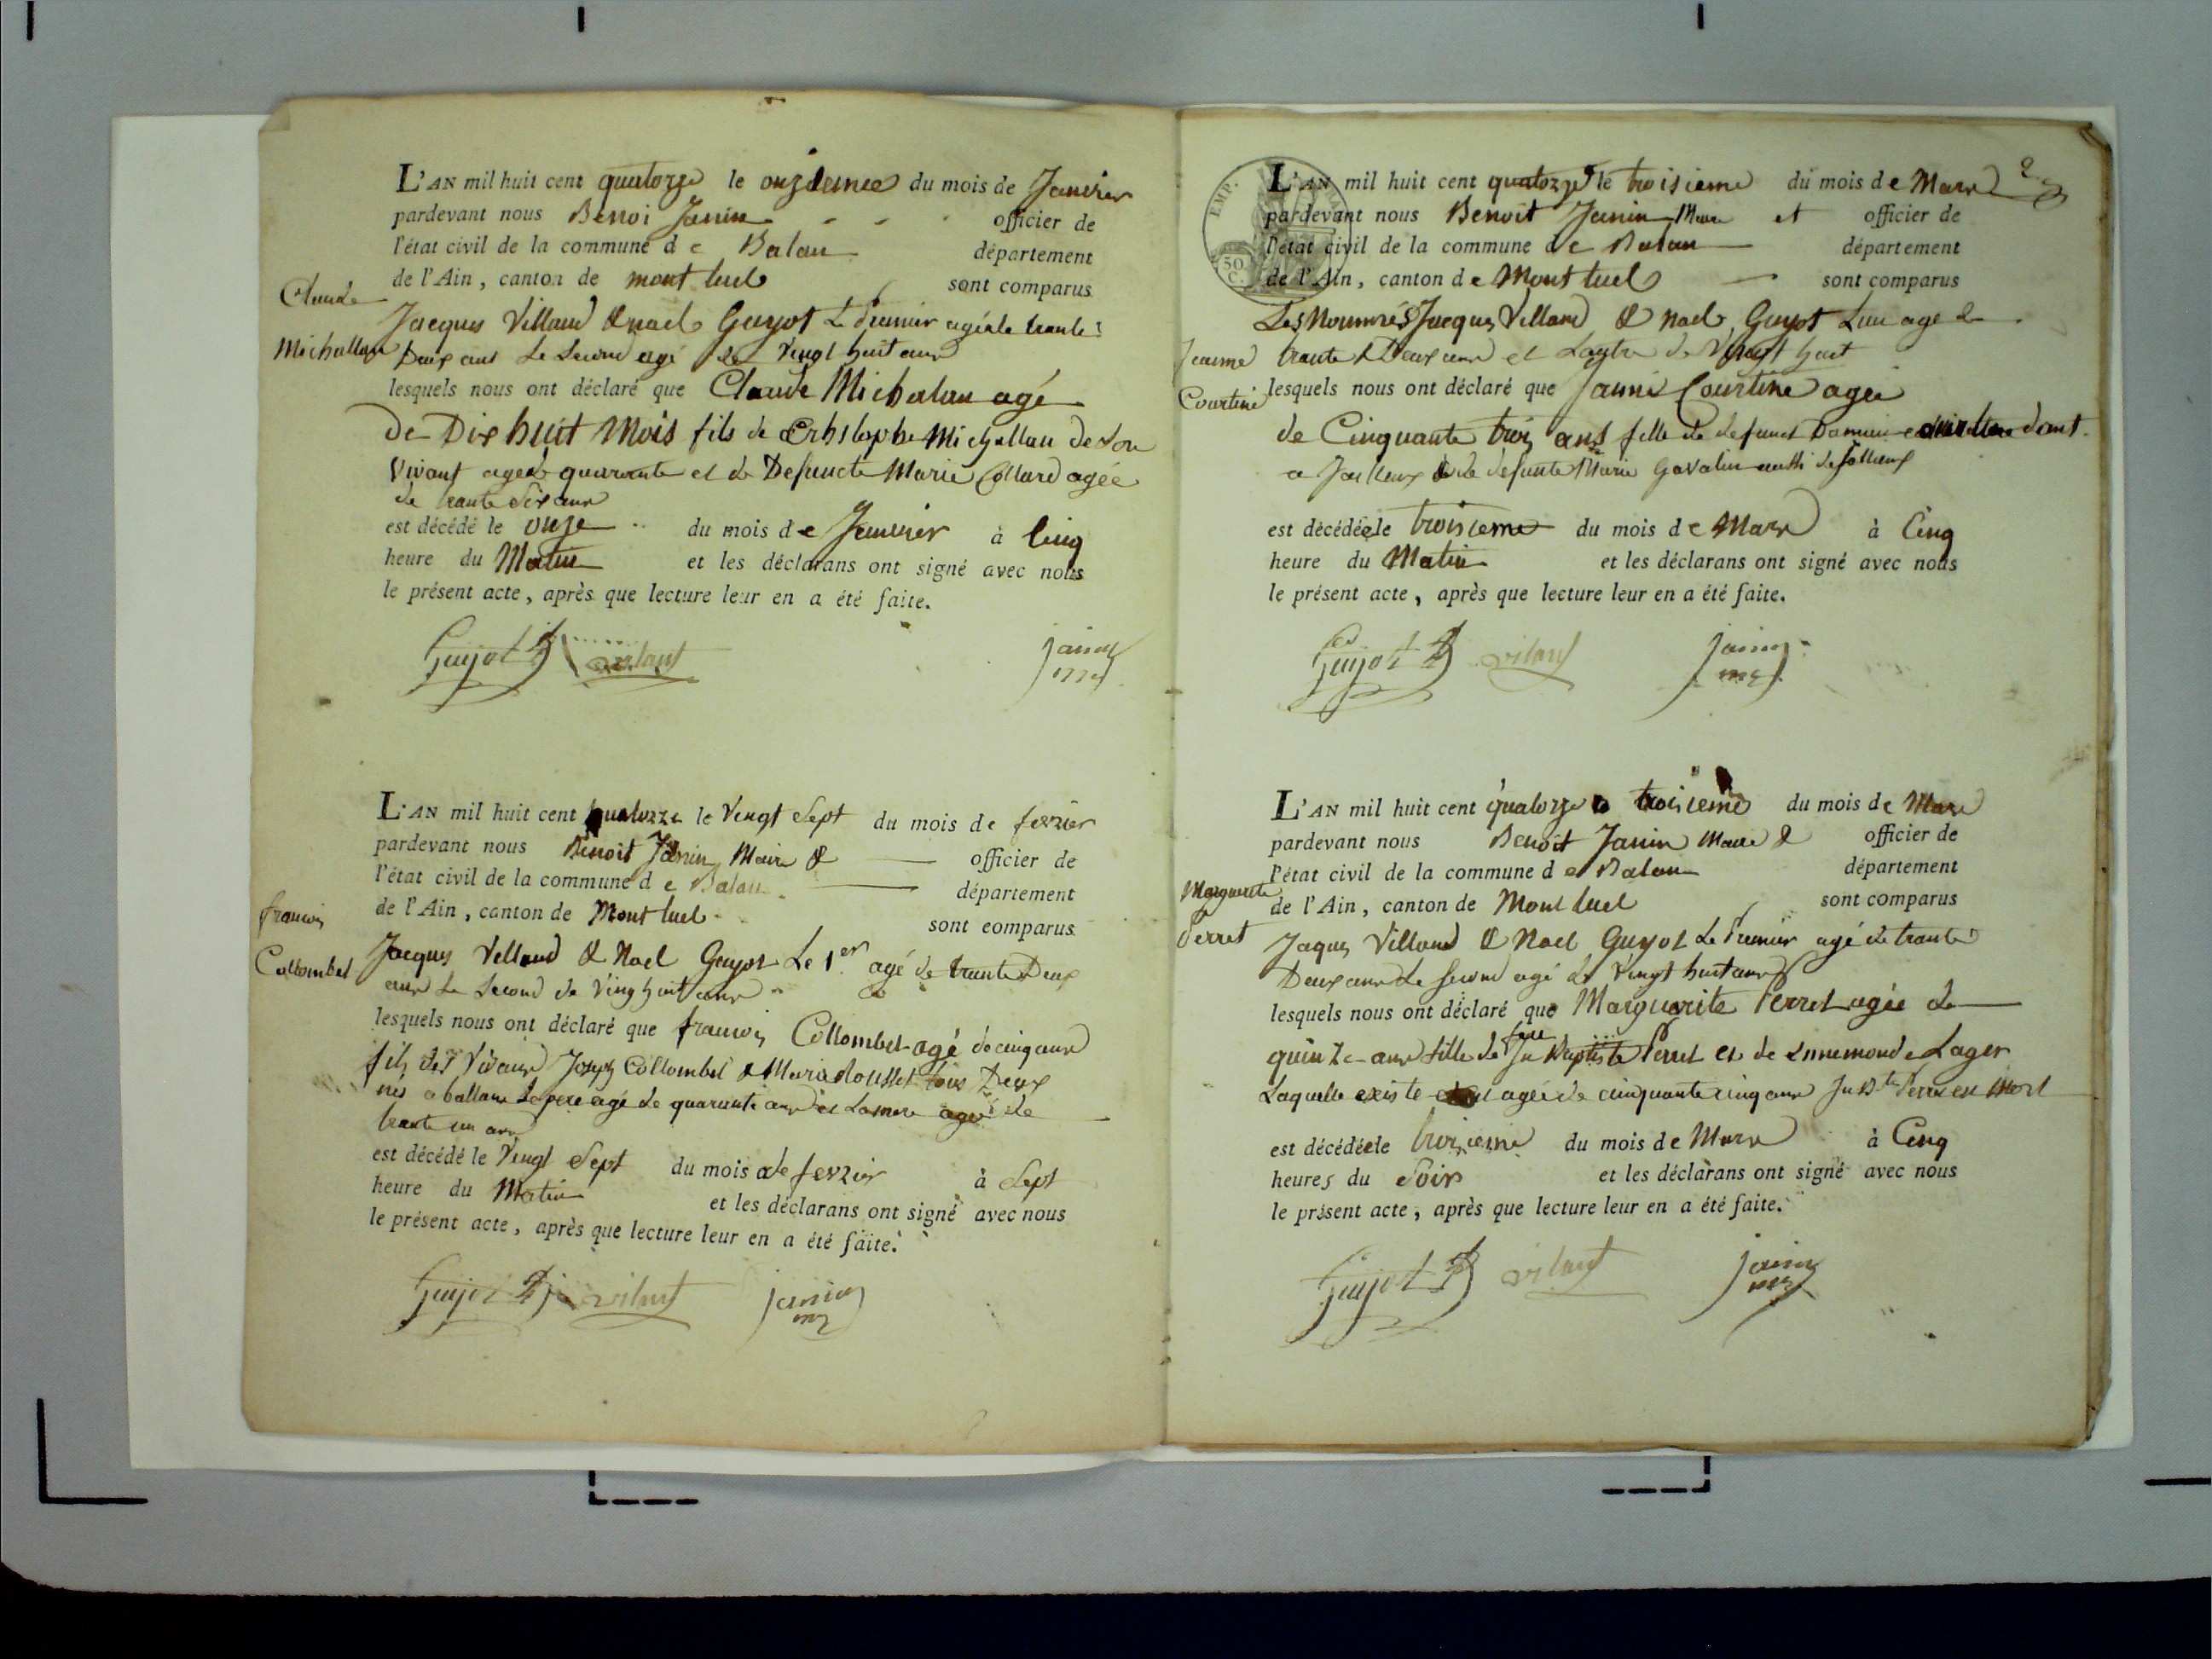 L'AN mil huit cent quatorze le onzieme du mois de Janvier
pardevant nous Benoi Janin officier de
l'état civil de la commune de Balan département
de l'Ain, canton de montluel sont comparus
Claude
Michallan
Jacques Villand & noel Guyot Le Premier agé de trante
Deux ans Le Second agé de Vingt huit ans
lesquels nous ont déclaré que Claude Michalan agé
de Dix huit Mois fils de Crhistophe Michallan de Son
Vivant agé de quarante et de Defuncte Marie Collard agée
de trante Six ans
est décédé le onze du mois de Janvier à Cinq
heure du Matin et les déclarans ont signé avec nous
le présent acte, après que lecture leur en a été faite.
Guyot vilant janin
L'AN mil huit cent quatorze le Vingt Sept du mois de fevrier
pardevant nous Benoit Janin Maire & officier de
l'état civil de la commune de Balan département
de l'Ain, canton de Montluel sont comparus
francois
Collombel
Jacques Villand & Noel Guyot Le 1er agé de trante Deux
ans Le Second de Ving huit ans
lesquels nous ont déclaré que francois Collombel agé de cinq ans
fils des Vivans Joseph Collombel & Marie tous Deux
nés a ballan Le pere agé de quarante ans et La mere agée de
trante un ans
est décédé le Vingt Sept du mois de fevrier à Sept
heure du Matin et les déclarans ont signé avec nous
le présent acte, après que lecture leur en a été faite.
Guyot vilant janin
2
EMP.
50
C.
L'AN mil huit cent quatorze le troisieme du mois de Mars
pardevant nous Benoit Janin Maire et officier de
l'état civil de la commune de Balan département
de l'Ain, canton de Montluel sont comparus
Les Nommés Jacques Villand & Noel Guyot L'un agé de
Jeanne
Courtine
trante Deux ans et Lautre de Vingt huit
lesquels nous ont déclaré que Janne Courtine agée
de Cinquante trois ans fille de defunct
a Jailleux & de defunte Marie Gavalin aussi de Jallieux
est décédée le troisieme du mois de Mars à Cinq
heure du Matin et les déclarans ont signé avec nous
le présent acte, après que lecture leur en a été faite.
Guyot vilant janin
L'AN mil huit cent quatorze le troisieme du mois de Mars
pardevant nous Benoit Janin Maire & officier de
l'état civil de la commune de Balan département
de l'Ain, canton de Montluel sont comparus
Marguerite
Perret
Jaques Villand & Noel Guyot Le Premier agé de trante
Deux ans Le Second agé de Vingt huit ans
lesquels nous ont déclaré que Marguerite Perret agée de
quinze ans fille de feu Jn Baptiste Perret et de Ennemonde Lager
Laquelle existe agée de cinquante cinq ans Jn Bte Perret est Mort
est décédée le troisieme du mois de Mars à Cinq
heures du Soir et les déclarans ont signé avec nous
le présent acte, après que lecture leur en a été faite.
Guyot vilant janin